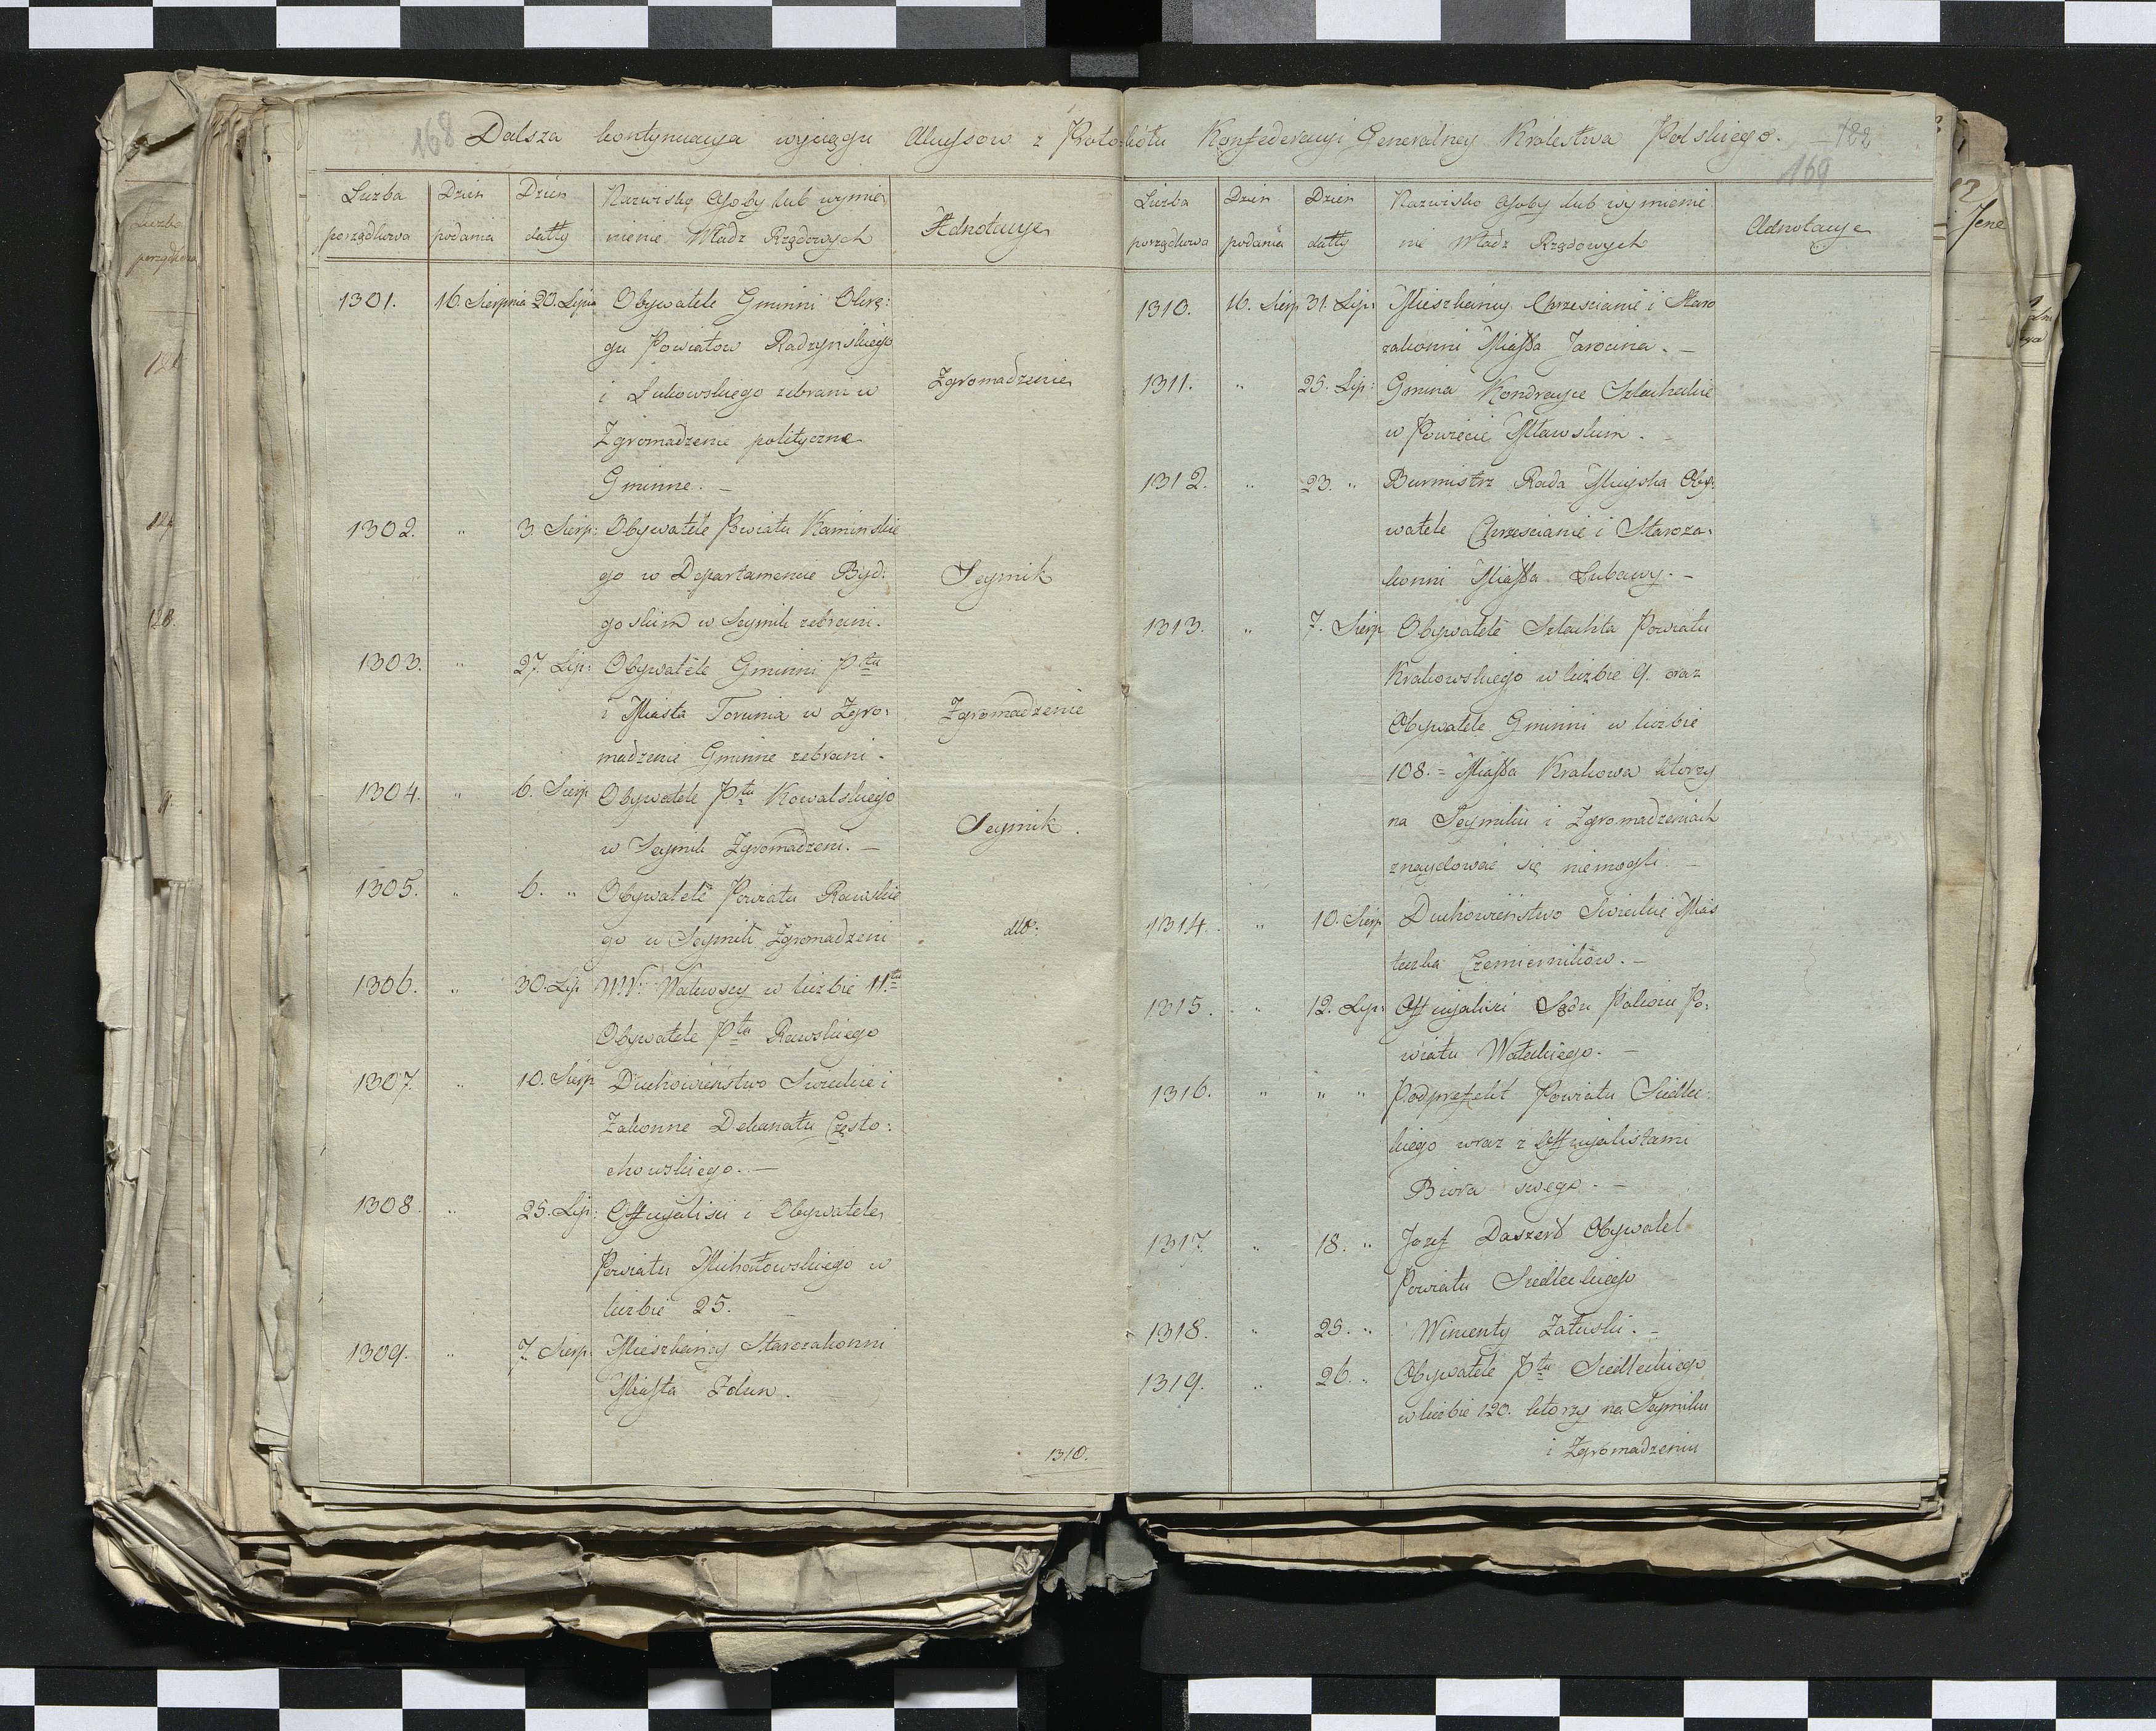 168 Dalsza kontynuacya wyciągu Akcessow z Protokółu Konfederacyi Generalney Krolestwa Polskiego. 188
169
Liczba Dzien Dzien Nazwisko Osoby lub wymie
porządkowa podania datty nienie Władz Rządowych Adnotacye
1301. 16. Sierpnia 20. Lipca Obywatele Gminni Okrę:
gu Powiatow Radzynskiego
i Łukowskiego zebrani w Zgromadzenie
Zgromadzenie polityczne
Gminne. –
1302. " 3. Sierp: Obywatele Powiatu Kaminskie
go w Departamencie Byd: Seymik
goskim w Seymik zebrani.
1303. " 27. Lip: Obywatele Gminni Ptu
i Miasta Torunia w Zgro: Zgromadzenie
madzenie Gminne zebrani.
1304. " 6. Sierp Obywatele Ptu Kowalskiego
w Seymik Zgromadzeni. – Seymik.
1305. " 6. " Obywatele Powiatu Rawskie
go w Seymik Zgromadzeni dto:
1306. " 30. Lip WW. Walewscy w liczbie 11.tu
Obywatele Ptu Rawskiego
1307. " 10. Sierp Duchowieństwo Swieckie i
Zakonne Dekanatu Często:
chowskiego. –
1308. " 25. Lip: Officyalisci i Obywatele
Powiatu Michałowskiego w
liczbie 25. –
1309. " 7. Sierp: Mieszkańcy Starozakonni
Miasta Zdun. –
1310.
Liczba Dzien Dzien Nazwisko Osoby lub wymienie
porządkowa podania datty nie Władz Rządowych Adnotacye
1310. 16. Sierp 31. Lip: Mieszkańcy Chrzescianie i Staro
zakonni Miasta Jarocina. –
1311. " 25. Lip: Gmina Kondrayce Szlacheckie
w Powiecie Mławskim. –
1312. " 23. " Burmistrz Rada Mieyska Oby:
watele Chrzescianie i Staroza:
konni Miasta Lubawy. –
1313. " 7. Sierp Obywatele Szlachta Powiatu
Krakowskiego w liczbie 9. oraz
Obywatele Gminni w liczbie
108. = Miasta Krakowa ktorzy
na Seymiku i Zgromadzeniach
znaydować się niemogli. –
1314. " 10. Sierp Duchowieństwo Swieckie Mias
teczka Czemiernikow. –
1315. " 12. Lip: Officyalisci Sądu Pokoiu Po:
wiatu Wałeckiego. –
1316. " " " Podprefekt Powiatu Siedlec:
kiego wraz z Officyalistami
Biura swego. –
1317. " 18. " Jozef Daszert Obywatel
Powiatu Siedleckiego
1318. " 25. " Wincenty Załuski. –
1319. " 26. " Obywatele Ptu Siedleckiego
w liczbie 120. ktorzy na Seymiku
i Zgromadzeniu